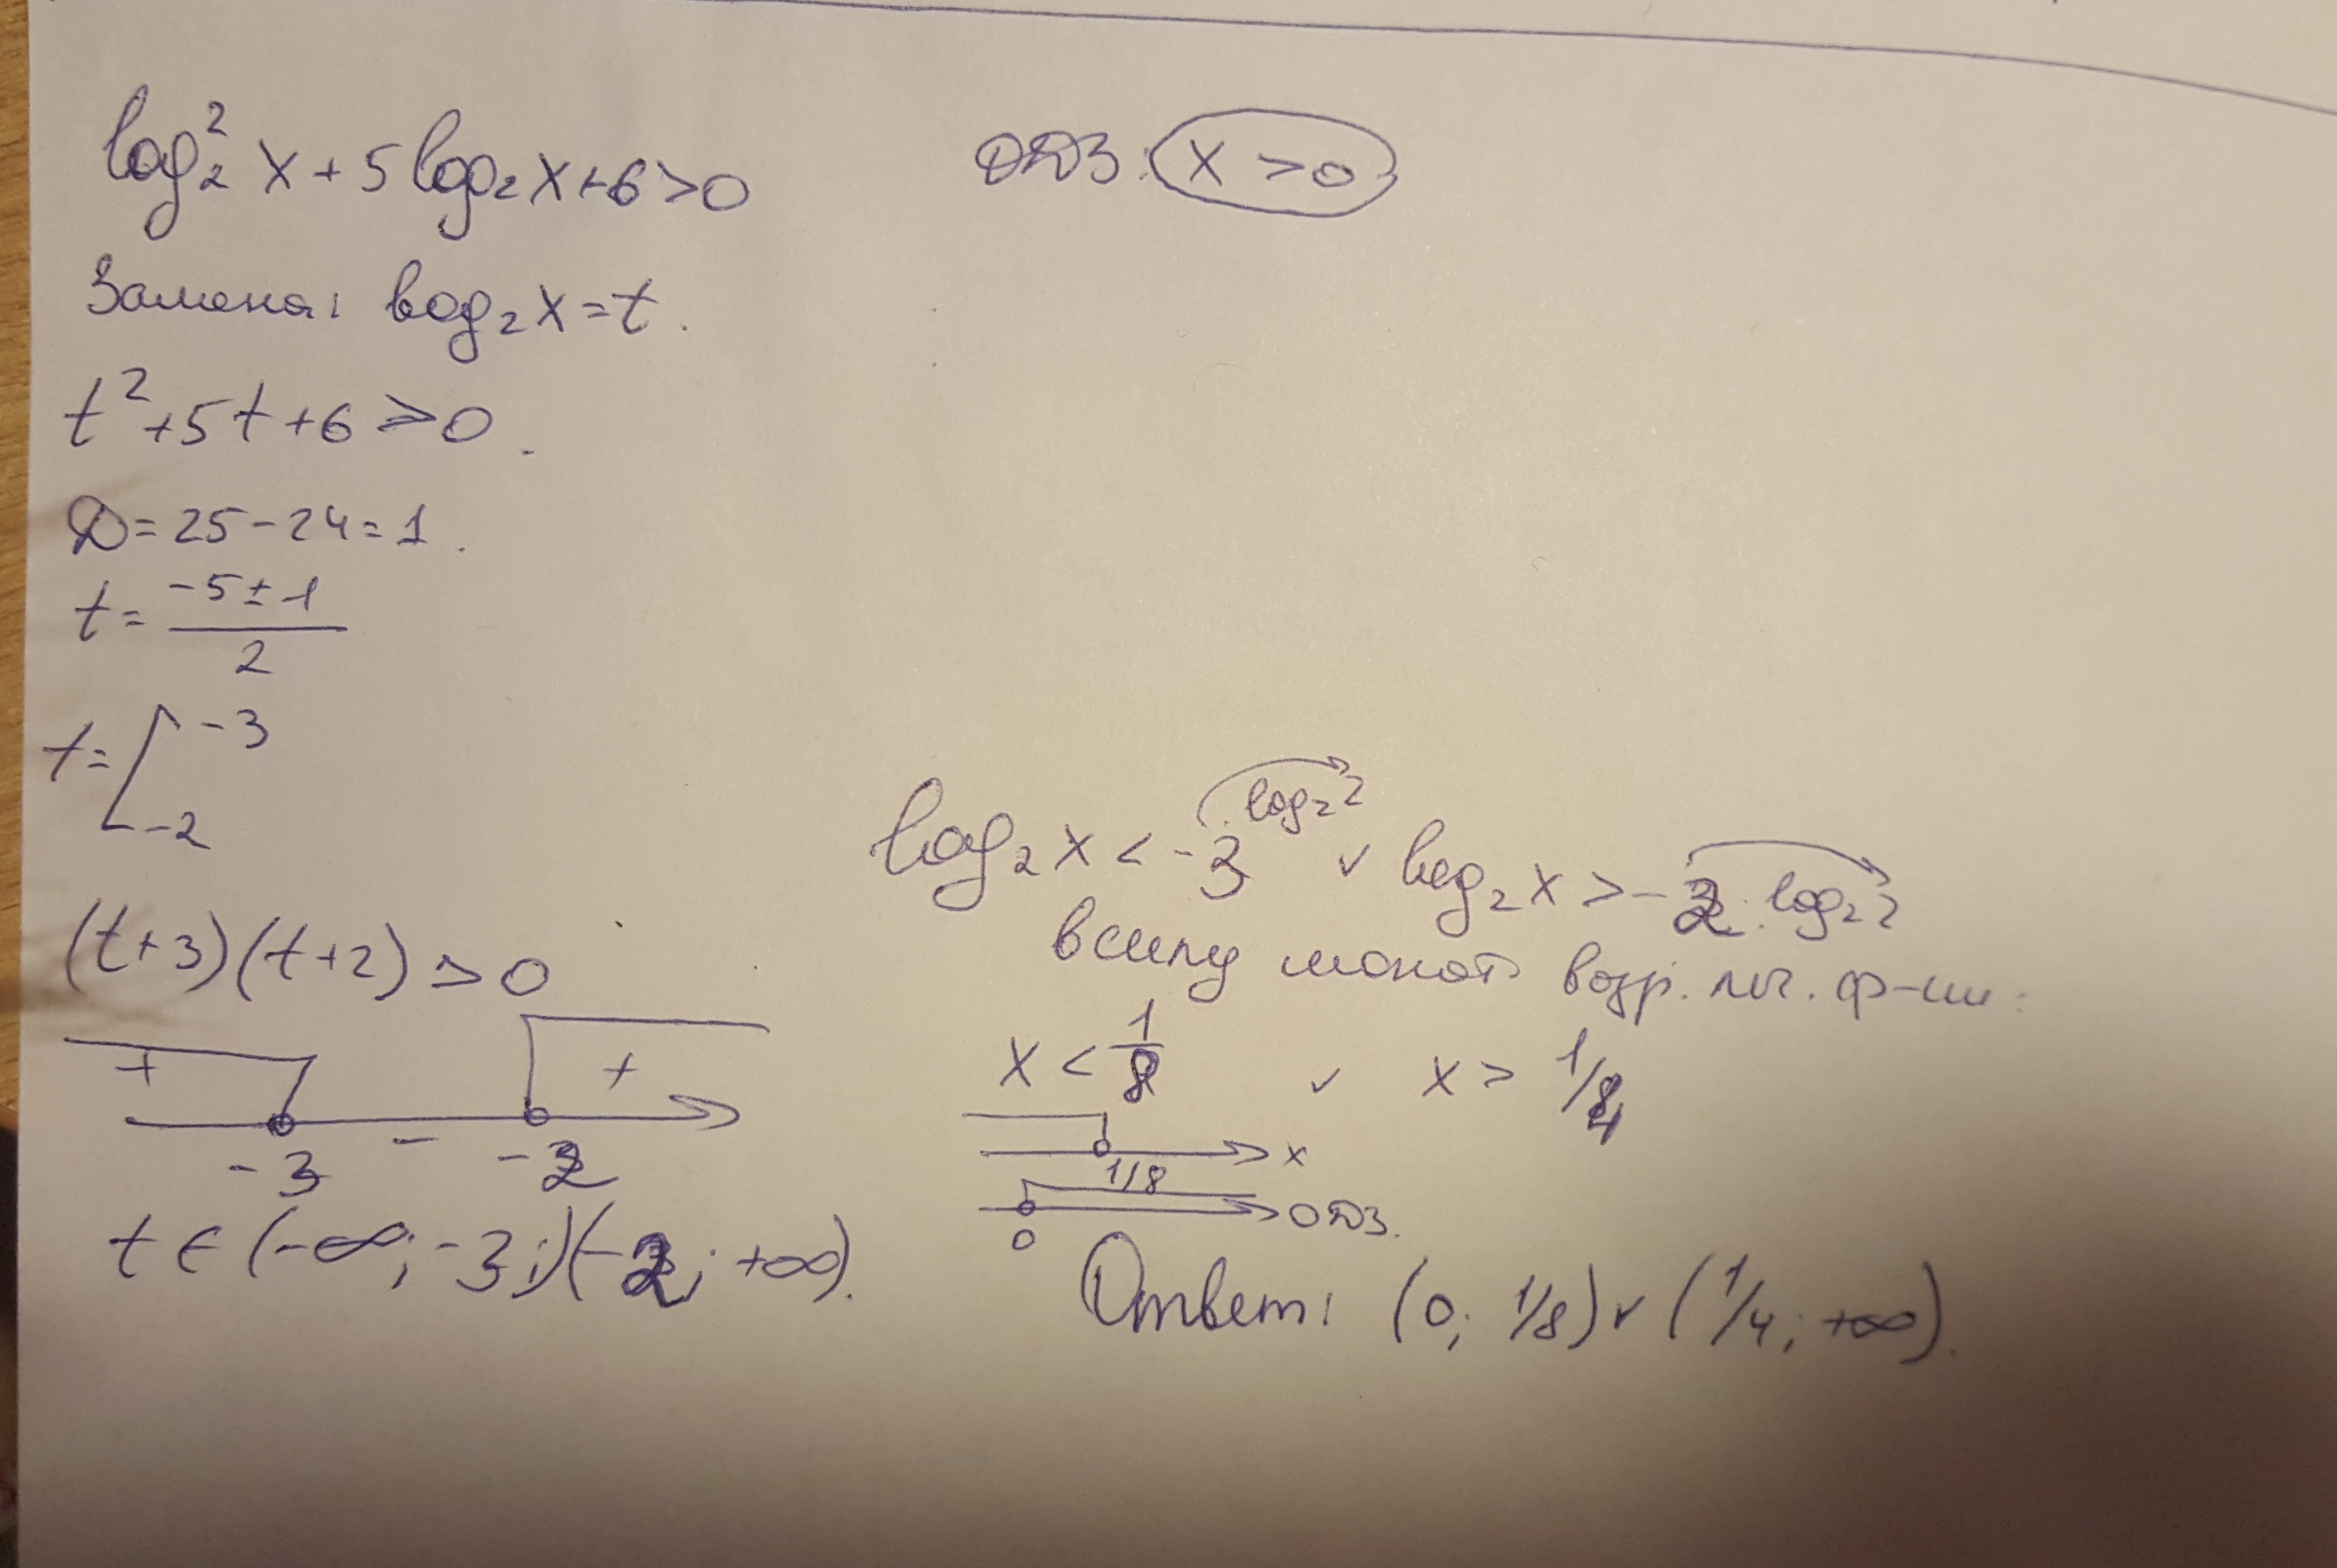 log₂² x + 5 log₂ x + 6 > 0
ОДЗ: x > 0
Замена: log₂ x = t.
t² + 5t + 6 > 0.
D = 25 - 24 = 1.
t = (-5 ± 1) / 2
t = [ -3
-2
(t+3)(t+2) > 0
+ - +
-3 -2
t ∈ (-∞; -3;)(-2; +∞).
log₂ x < -3 · log₂ 2 ∨ log₂ x > -2 · log₂ 2
в силу монот возр. лог. ф-ии:
x < 1/8 ∨ x > 1/4
1/8 x
0 ОДЗ.
Ответ: (0; 1/8) ∨ (1/4; +∞).